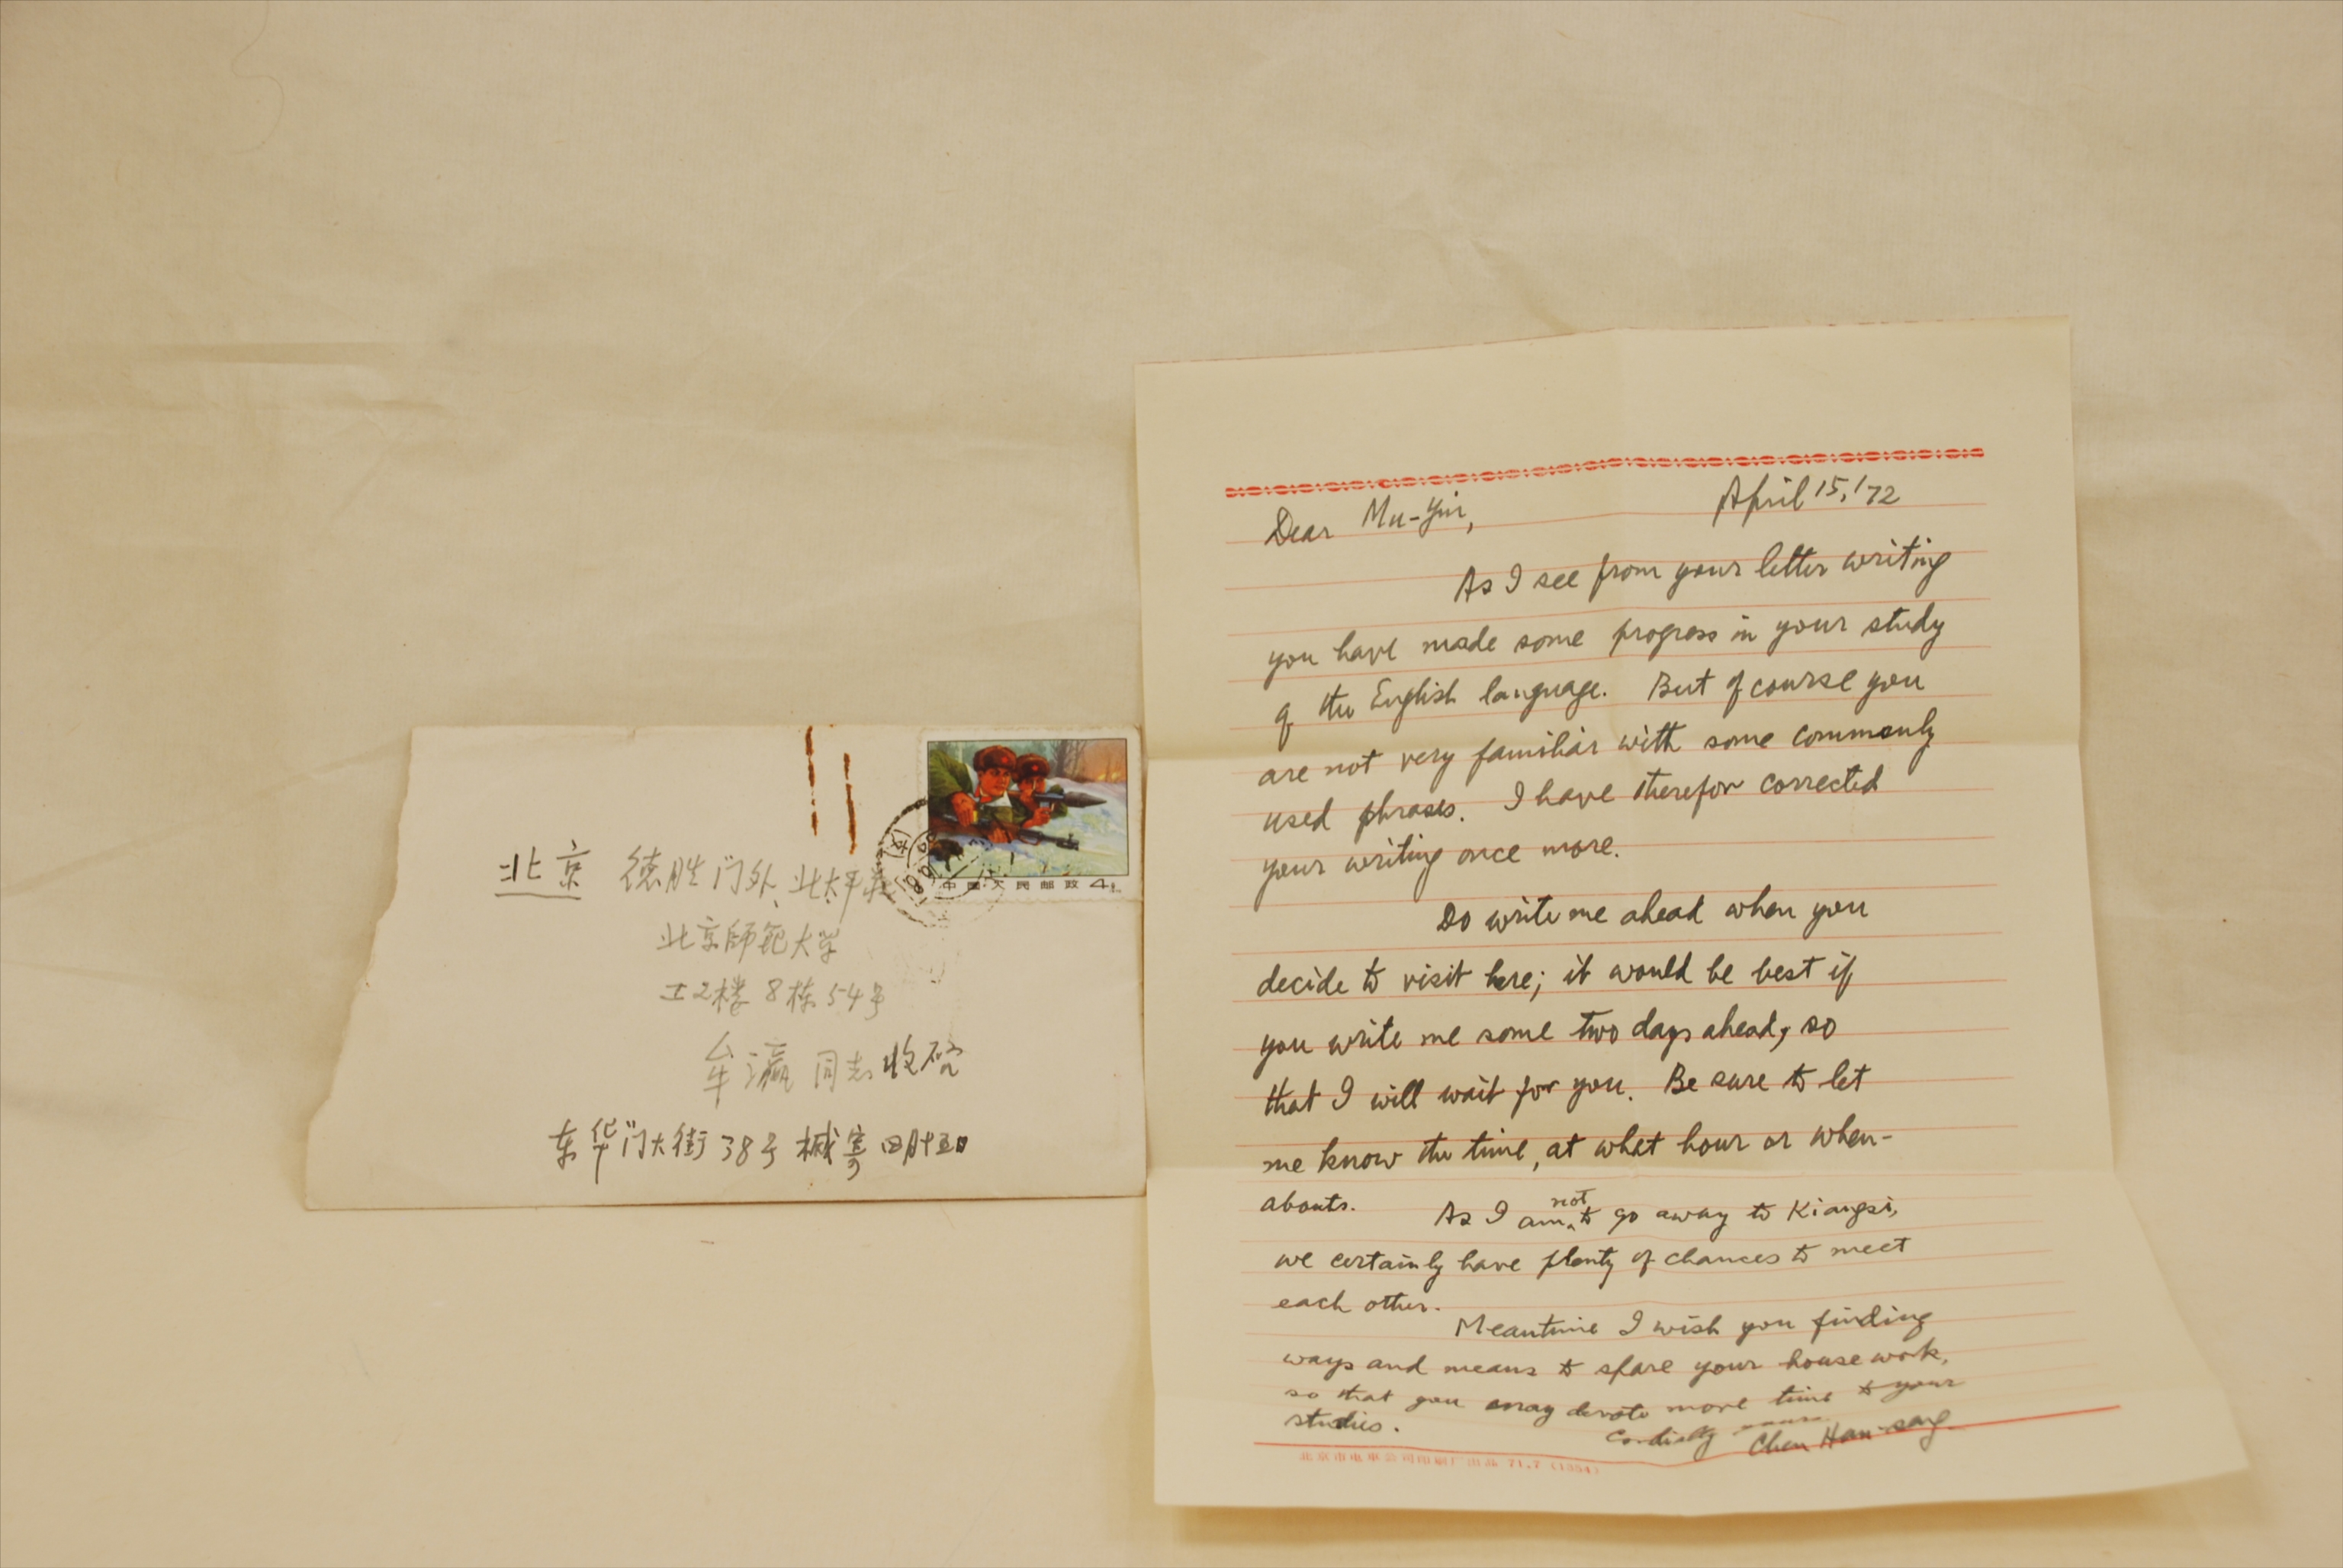 北京 德胜门外、北太平庄
北京師範大学
工2楼 8栋 54号
牟瀛 同志 收启
东华门大街 38号 椷寄 四月十五日
中国人民邮政 4分
April 15, '72
Dear Mu-Yin,
As I see from your letter writing
you have made some progress in your study
of the English language. But of course you
are not very familiar with some commonly
used phrases. I have therefor corrected
your writing once more.
Do write me ahead when you
decide to visit here; it would be best if
you write me some two days ahead, so
that I will wait for you. Be sure to let
me know the time, at what hour or when-
abouts. As I am not to go away to Kiangsi,
we certainly have plenty of chances to meet
each other.
Meantime I wish you finding
ways and means to spare your house work,
so that you may devote more time to your
studies.
Cordially yours
Chen Han-seng
北京市电車公司印刷厂出品 71.7 (1354)